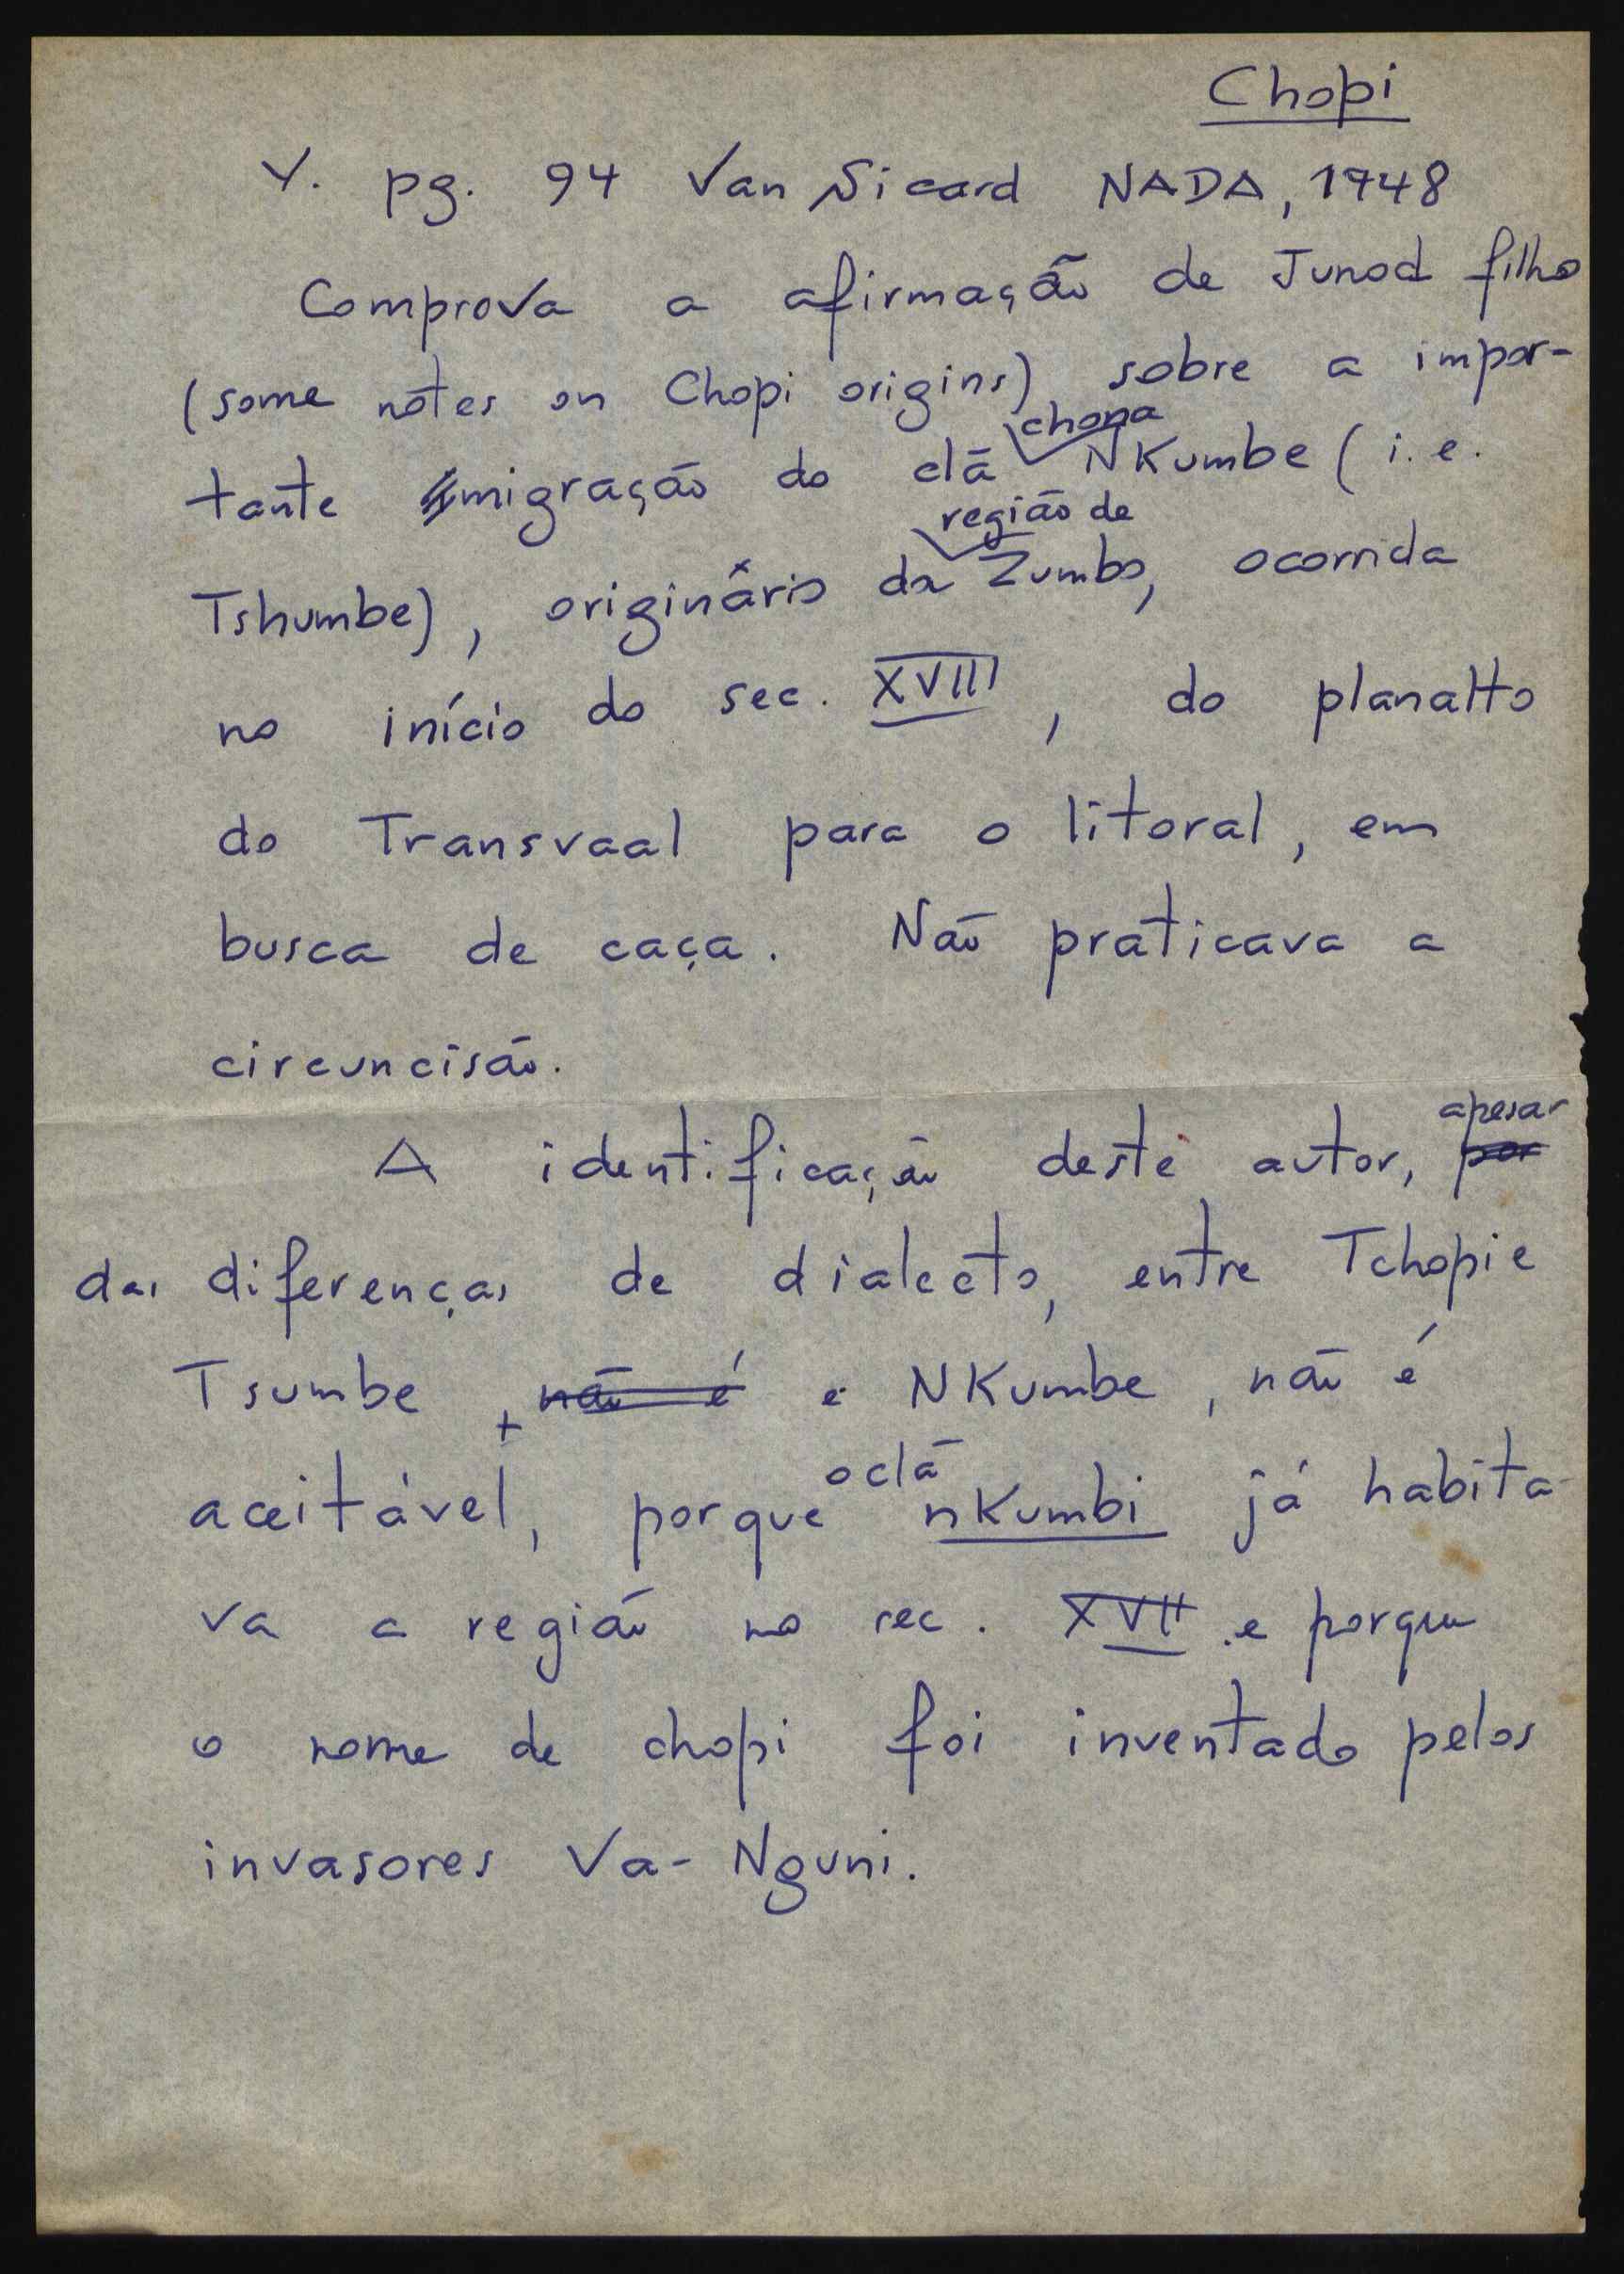 Chopi
V. pg. 94 Van Sicard NADA, 1948
Comprova a afirmação de Junod filho
(some notes on Chopi origins) sobre a impor-
chona
tante migração do clã NKumbe (i.e.
região de
Tshumbe), originário da Zumbo, ocorrida
no início do sec. XVIII, do planalto
do Transvaal para o litoral, em
busca de caça. Não praticava a
circuncisão.
apesar
A identificação deste autor, por
das diferenças de dialecto, entre Tchopi e
Tsumbe, não é e NKumbe, não é
o clã
aceitável, porque nKumbi já habita-
va a região no sec. XVII e porque
o nome de chopi foi inventado pelos
invasores Va-Nguni.